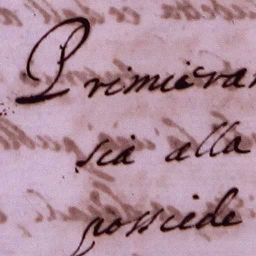 Primieram
sia alla
possiede